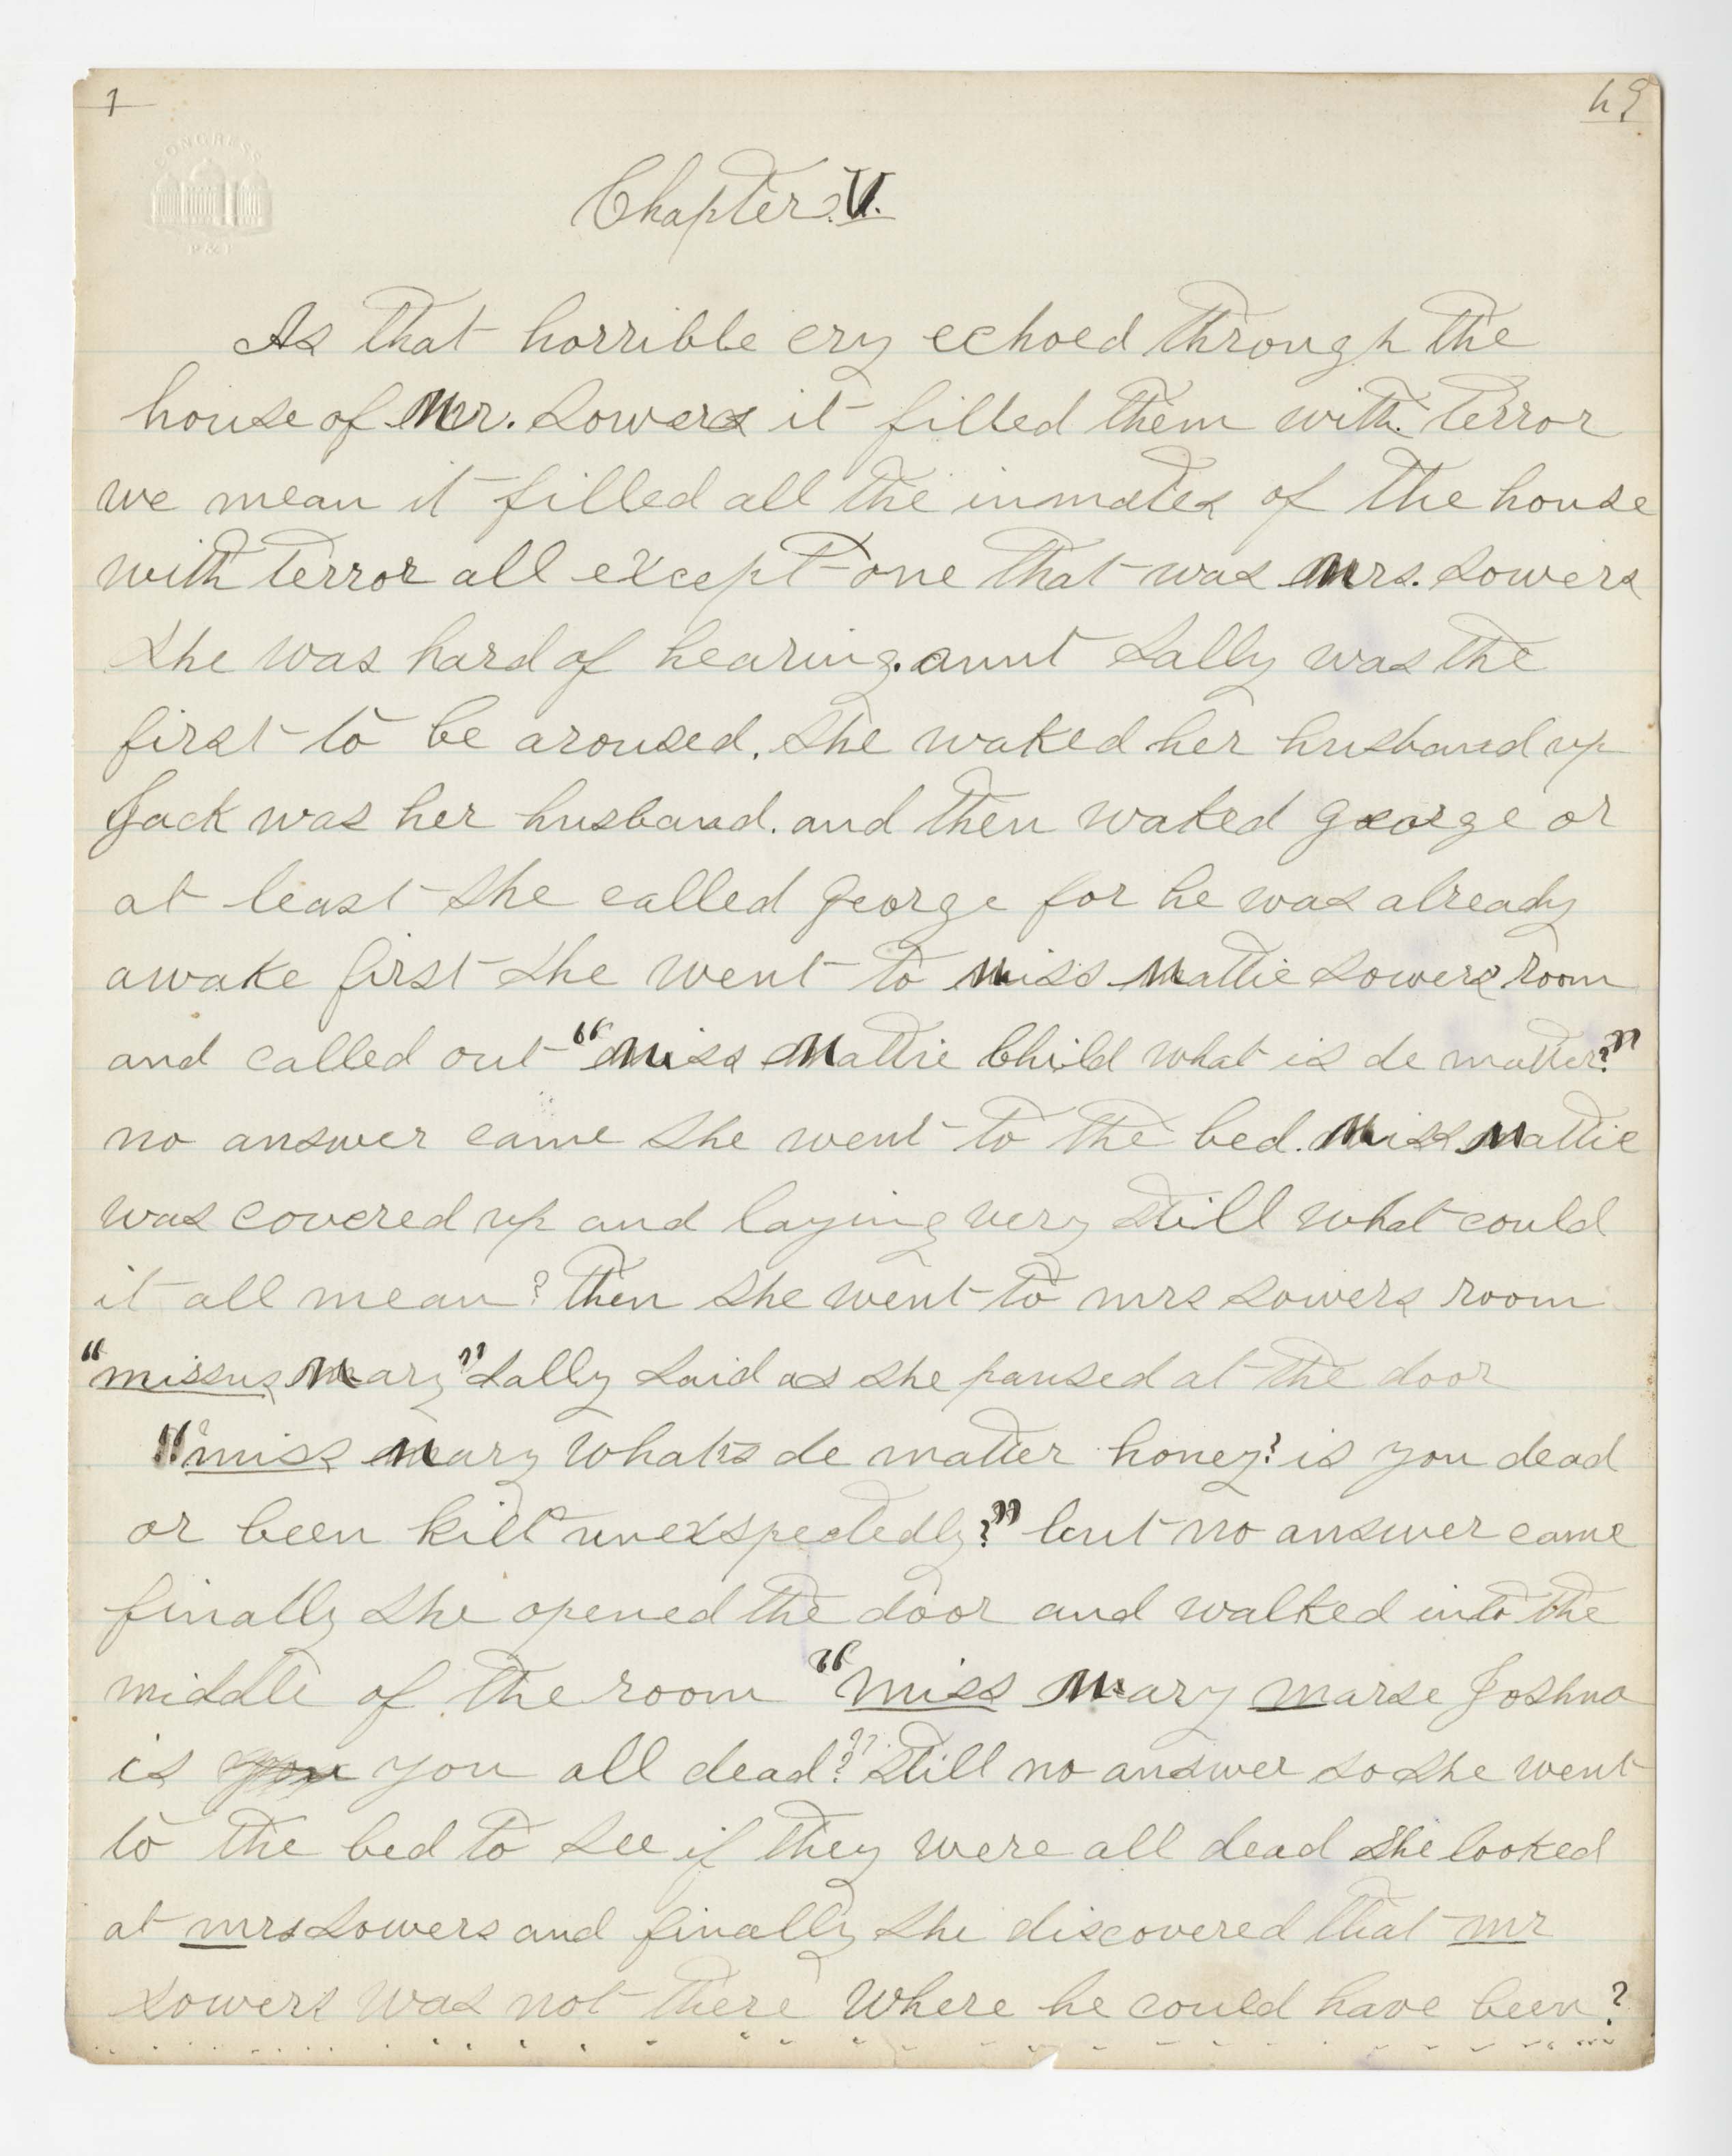 1
49
CONGRESS
P & P
Chapter. V.
As that horrible cry echoed through the
house of Mr. Sowers it filled them with terror
we mean it filled all the inmates of the house
with terror all except one that was Mrs. Sowers
She was hard of hearing. aunt Sally was the
first to be aroused. She waked her husband up
Jack was her husband. and then waked George or
at least She called George for he was already
awake first She went to Miss Mattie Sowers room
and called out "Miss Mattie Child what is de matter?"
no answer came She went to the bed. Miss Mattie
was covered up and laying very Still what could
it all mean? Then She went to mrs Sowers room
"missus Mary" Sally Said as She paused at the door
"miss Mary whats de matter honey? is you dead
or been kilt unexspectedly?" but no answer came
finally She opened the door and walked into the
middle of the room "miss Mary marse Joshua
is you you all dead?" Still no answer so She went
to the bed to See if they were all dead She looked
at mrs Sowers and finally She discovered that mr
Sowers was not there where he could have been?